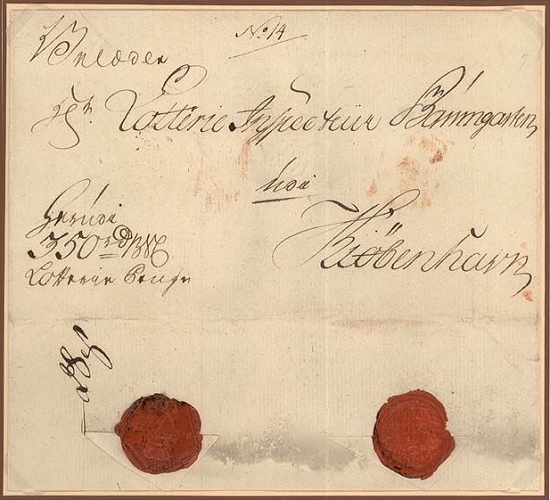 No 14
Velædle
Hr. Lotterie Inspecteur Baumgarten
udi
Kiøbenhavn
Herudi
350 rd
Lotterie Penge